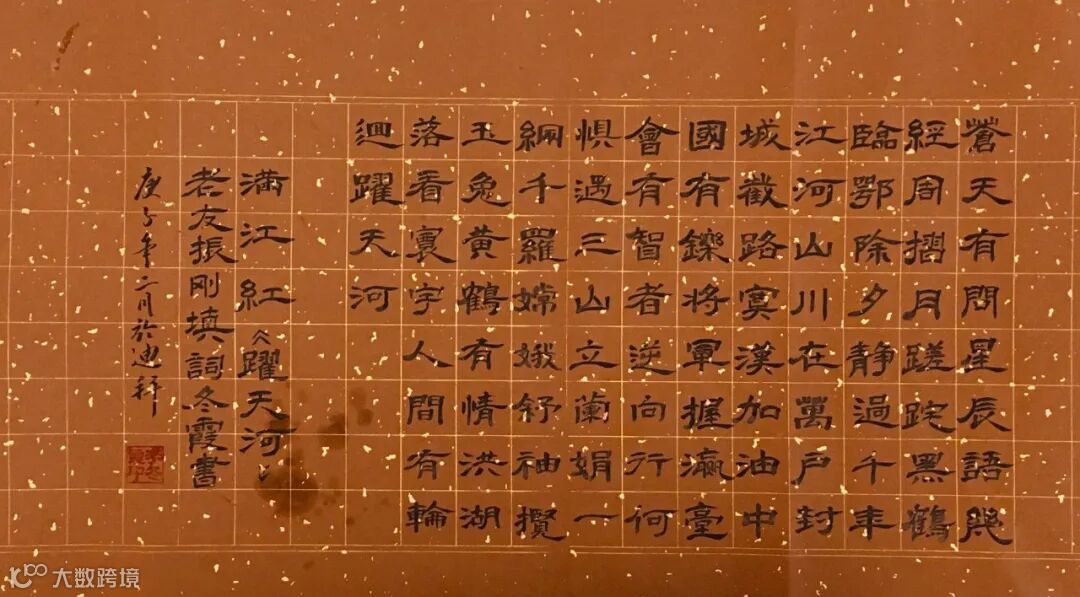 蒼天有問星辰語與
經周摺月蹉跎黑鶴
臨鄂除夕靜過千年
江河山川在萬戶封
城截路寞漢加油中
國有鑠將軍握瀛臺
會有智者逆向行何
惧遇三山立蘭娟一
網千羅嫦娥舒袖攬
玉兔黃鶴有情洪湖
落看寰宇人間有輪
迴躍天河
滿江紅《躍天河》
老友振剛填詞冬霞書
庚子年二月於迪拜
大数跨境